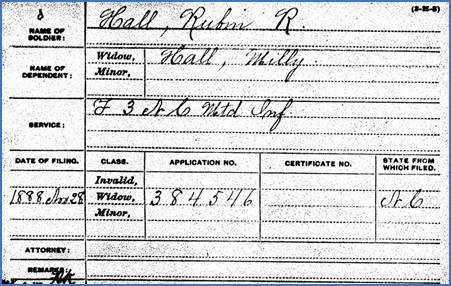 (3-25-5)
NAME OF SOLDIER: Hall, Rubin R.
NAME OF DEPENDENT: Widow, Hall, Milly
Minor,
SERVICE: F 3 N C Mtd Inf
DATE OF FILING. CLASS. APPLICATION NO. CERTIFICATE NO. STATE FROM WHICH FILED.
Invalid,
1888 Nov 28 Widow, 384546 N C
Minor,
ATTORNEY:
REMARKS: